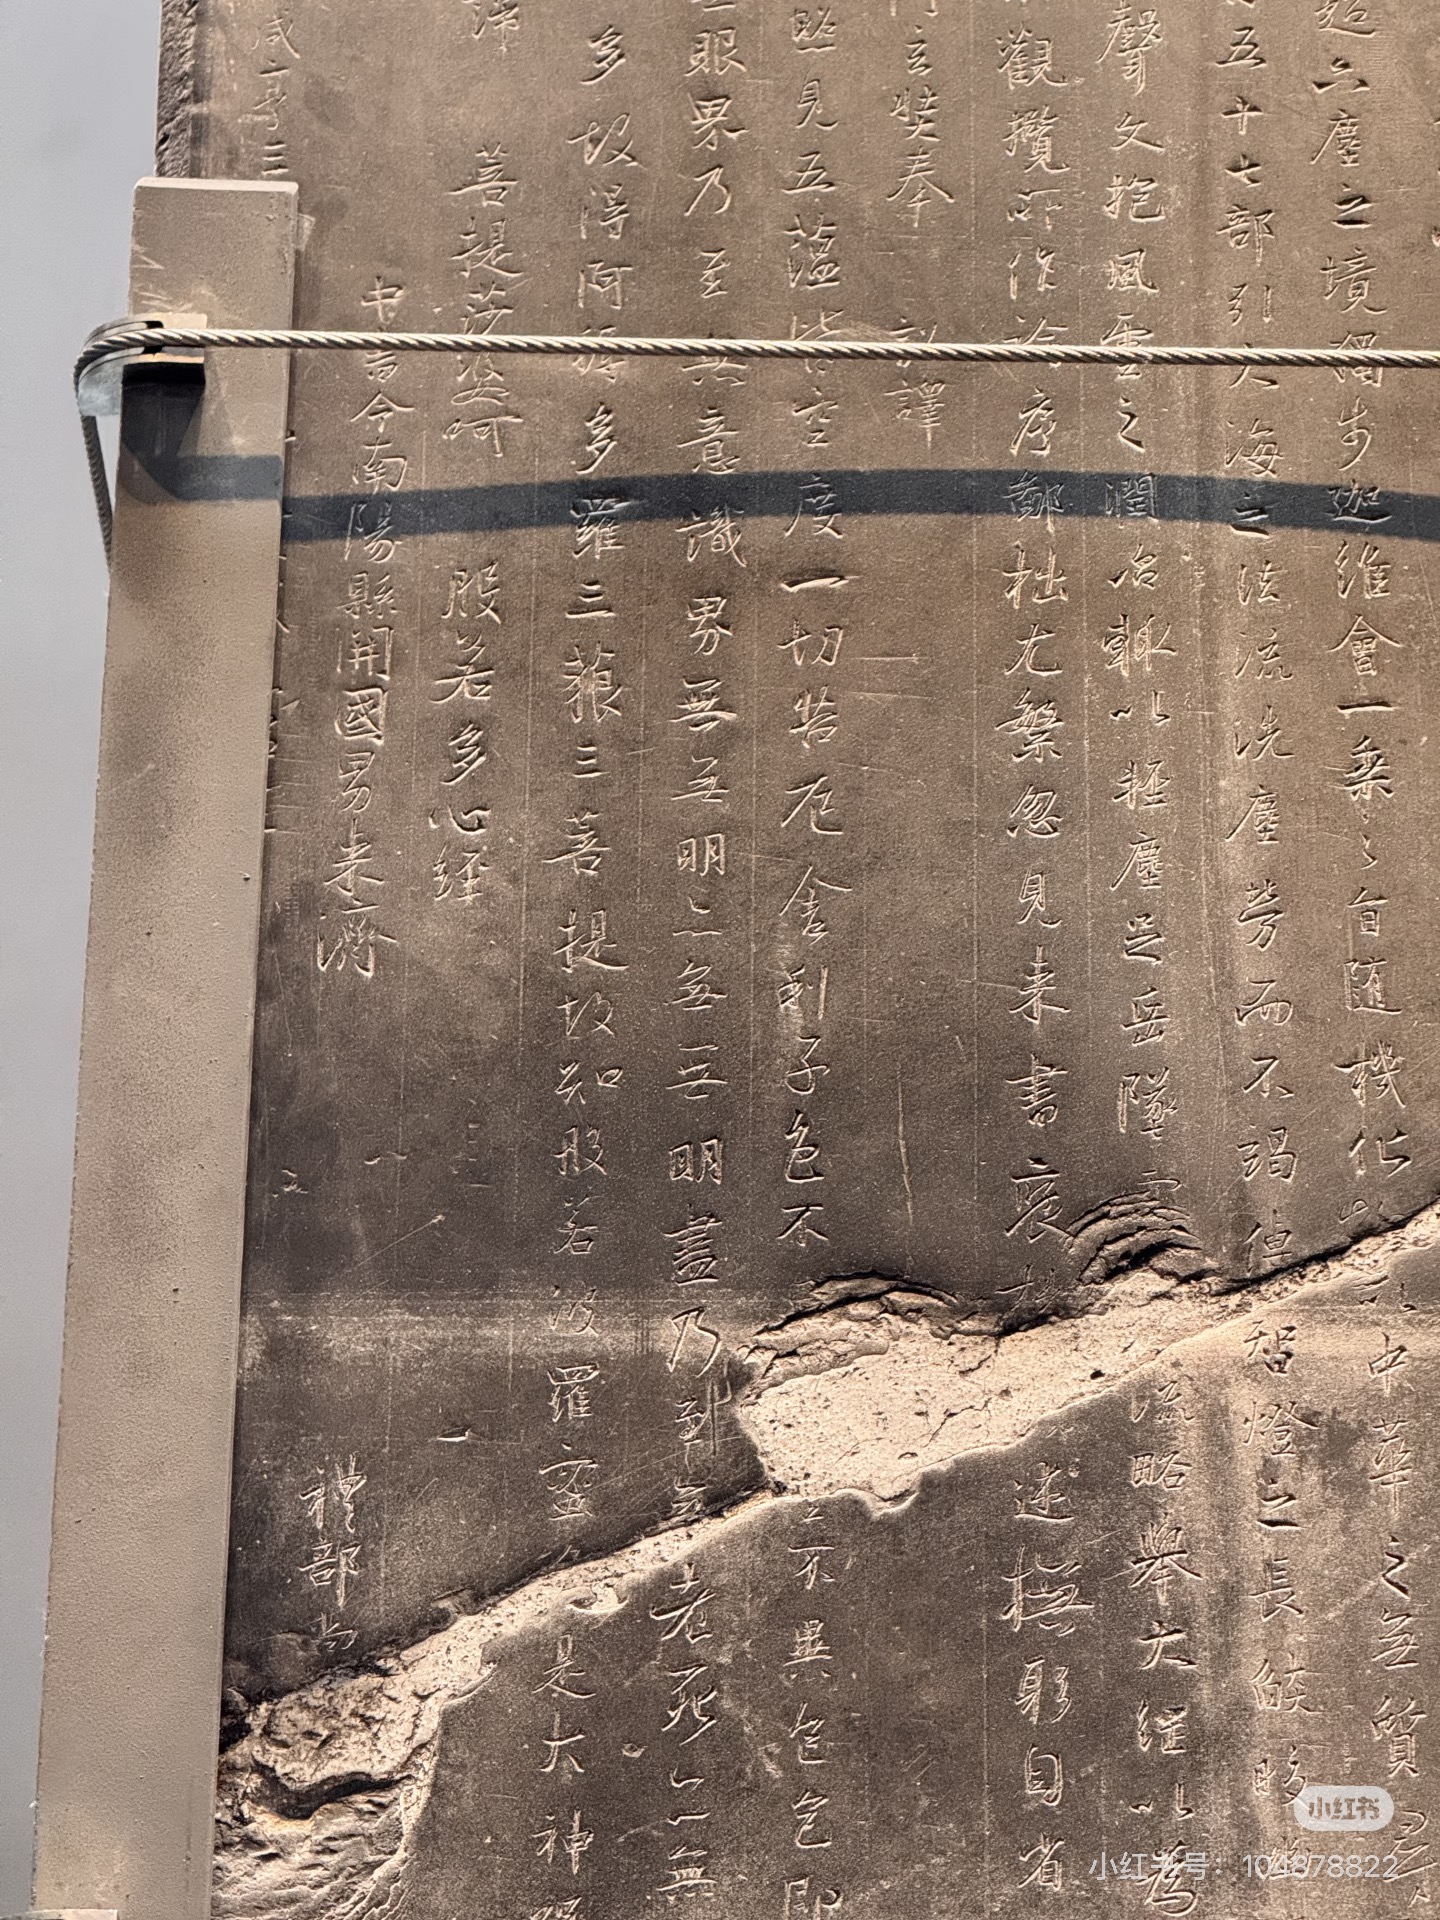 超六塵之境獨步迦維會一乘之旨随機化
中華之無質尋
五十七部引大海之法流洗塵勞而不竭傳
智燈之長皎
聲文抱風雲之潤治輒以輕塵足岳墜露
流略舉大綱以為
觀攬所作論序鄙拙尤繁忽見來書褒
述撫躬自省
玄奘奉 詔譯
照見五藴皆空度一切苦厄舍利子色不
亦異色色即
眼界乃至無意識界無無明亦無無明盡乃
老死亦無
多故得阿耨多羅三藐三菩提故知般若波羅蜜
是大神
諦 菩提莎婆呵
般若多心經
中書令南陽縣開國男來濟
禮部尚
咸亨三
小红书
小红书号：104878822